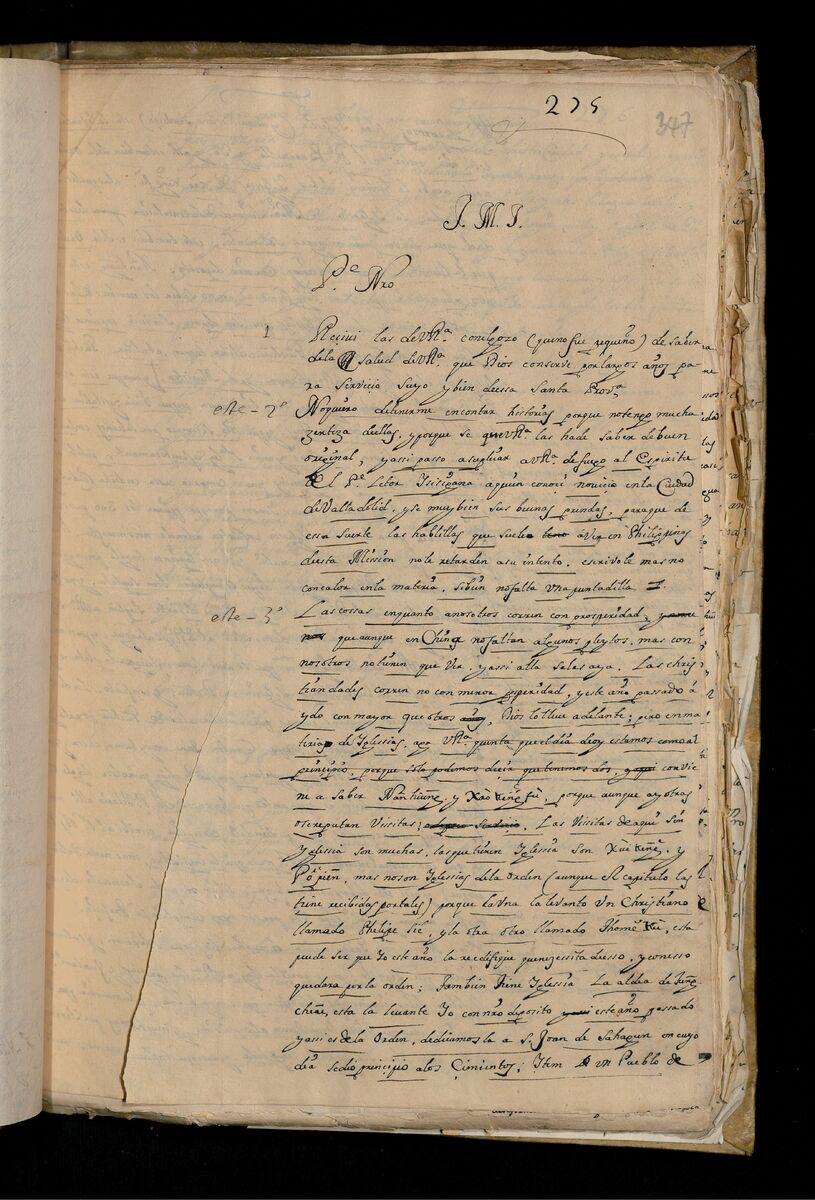 275
347
J. M. J.
P.e Nro
1 Reciui las de VRa. con el gozo (que no fue pequeño) de saber
de la salud de VRa. que Dios conserve por largos años pa-
ra servicio suyo y bien de essa Santa Prova.
este - 2º No quiero detenerme en contar historias porque no tengo mucha
zerteza dellas, y porque se que VRa. las hade saber de buen
original, y assi passo a suplicar a VRa. de fuego al Espiritu
del Pe. Letor a quien conoci novicio en la Ciudad
de Valladolid, y se muy bien sus buenas prendas, para que de
essa suerte las hablillas que suele aver en Philippinas
desta Mission no le retarden a su intento. escrivole mas no
con calor en la materia, si bien no falta una puntadilla
este - 3º Las cossas en quanto a nosotros corren con prosperidad,
que aunque en China no faltan algunos pleytos, mas con
nosotros no tienen que ver, y assi alla se las aya. Las chris-
tiandades corren no con menor prosperidad, y este año passado á
ydo con mayor que otros, Dios lo lleve adelante; pero en ma-
teria de Yglesias, VRa. que el dia de oy estamos como al
principio, porque solo podemos decir que tenemos dos, convie-
ne a saber y porque aunque ay otras
se reputan Vissitas; Las Vissitas de aqui sin
Yglessia son muchas, las que tienen Yglessia son y
mas no son Yglesias de la orden (aunque el capitulo las
tiene recibidas por tales) porque la una la levanto un Christiano
llamado Phelipe y la otra otro llamado Thome esta
puede ser que yo este año la reedifique que nezessita desso, y con esso
quedara por la orden; tambien tiene Yglessia La aldea de
esta la levante yo con nro deposito este año passado
y assi es de la Orden, dedicamosla a S. Joan de Sahagun en cuyo
dia se dio principio a los Cimientos; Item un Pueblo de